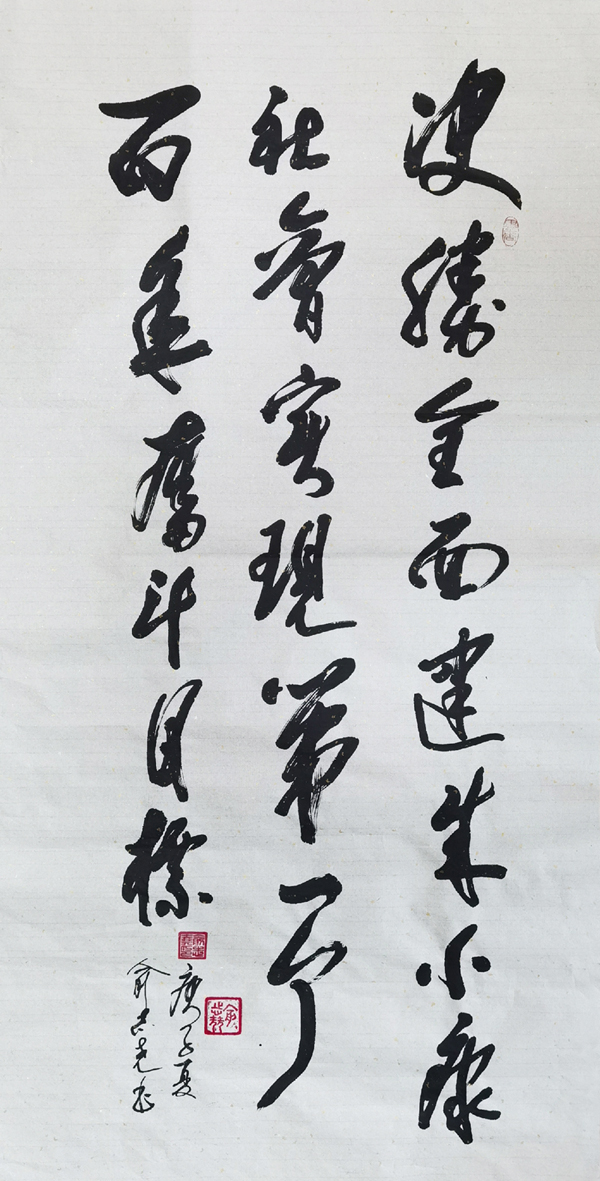 决勝全面建成小康
社會實現第一个
百年奮斗目標
庚子夏
俞